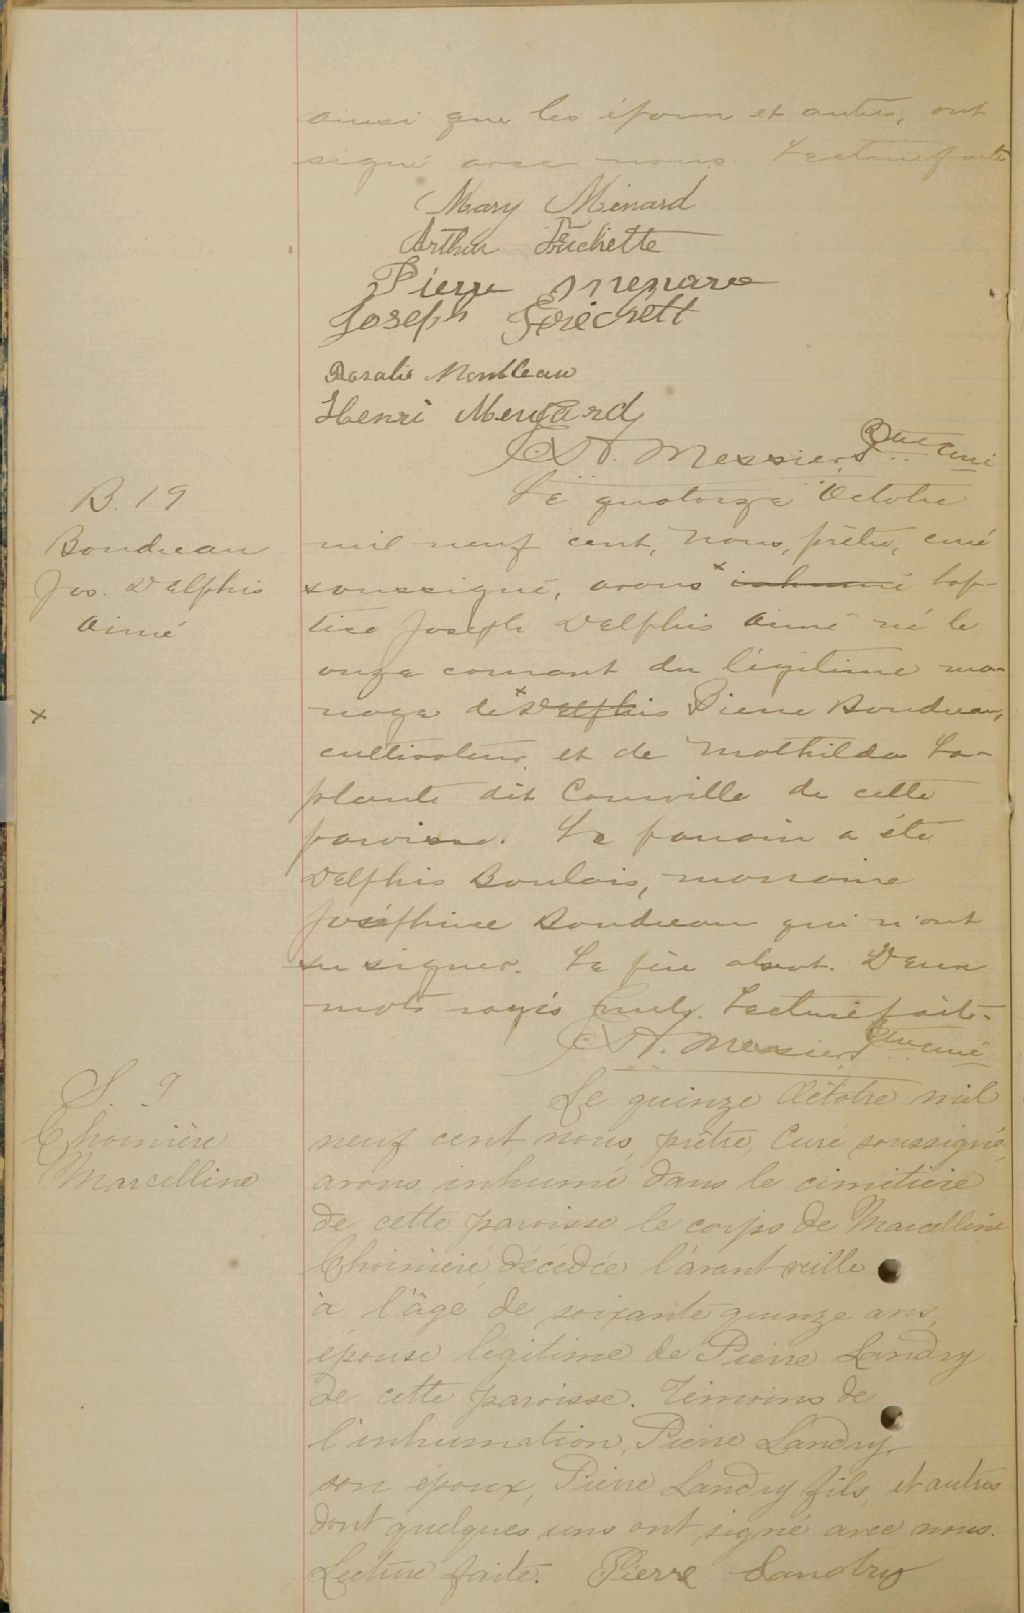 ainsi que les époux et autres, ont
signé avec nous. Lecture faite
Mary Ménard
Arthur Fréchette
Pierre Menard
Joseph Fréchett
Rosalie Montleau
Henri Menard
A. Messier, Ptre Curé
B. 19
Boudreau
Jos. Delphis
Aimé
Le quatorze Octobre
mil neuf cent, Nous, prêtre, curé
soussigné, avons x inhumé bap-
tisé Joseph Delphis Aimé né le
onze courant du légitime ma-
riage de x Delphis Pierre Boudreau,
x
cultivateur, et de Mathilda La-
plante dit Courville de cette
paroisse. Le parrain a été
Delphis Boulais, marraine
Joséphine Boudreau qui n'ont
su signer. Le père absent. Deux
mots rayés nuls. Lecture faite.
A. Messier, Ptre curé
S. 9
Choinière
Marcelline
Le quinze Octobre mil
neuf cent nous, prêtre, Curé soussigné,
avons inhumé dans le cimetière
de cette paroisse le corps de Marcelline
Choinière, décédée l'avant veille
à l'âge de soixante quinze ans,
épouse légitime de Pierre Landry
de cette paroisse. Témoins de
l'inhumation, Pierre Landry,
son époux, Pierre Landry fils, et autres
dont quelques uns ont signé avec nous.
Lecture faite. Pierre Landry